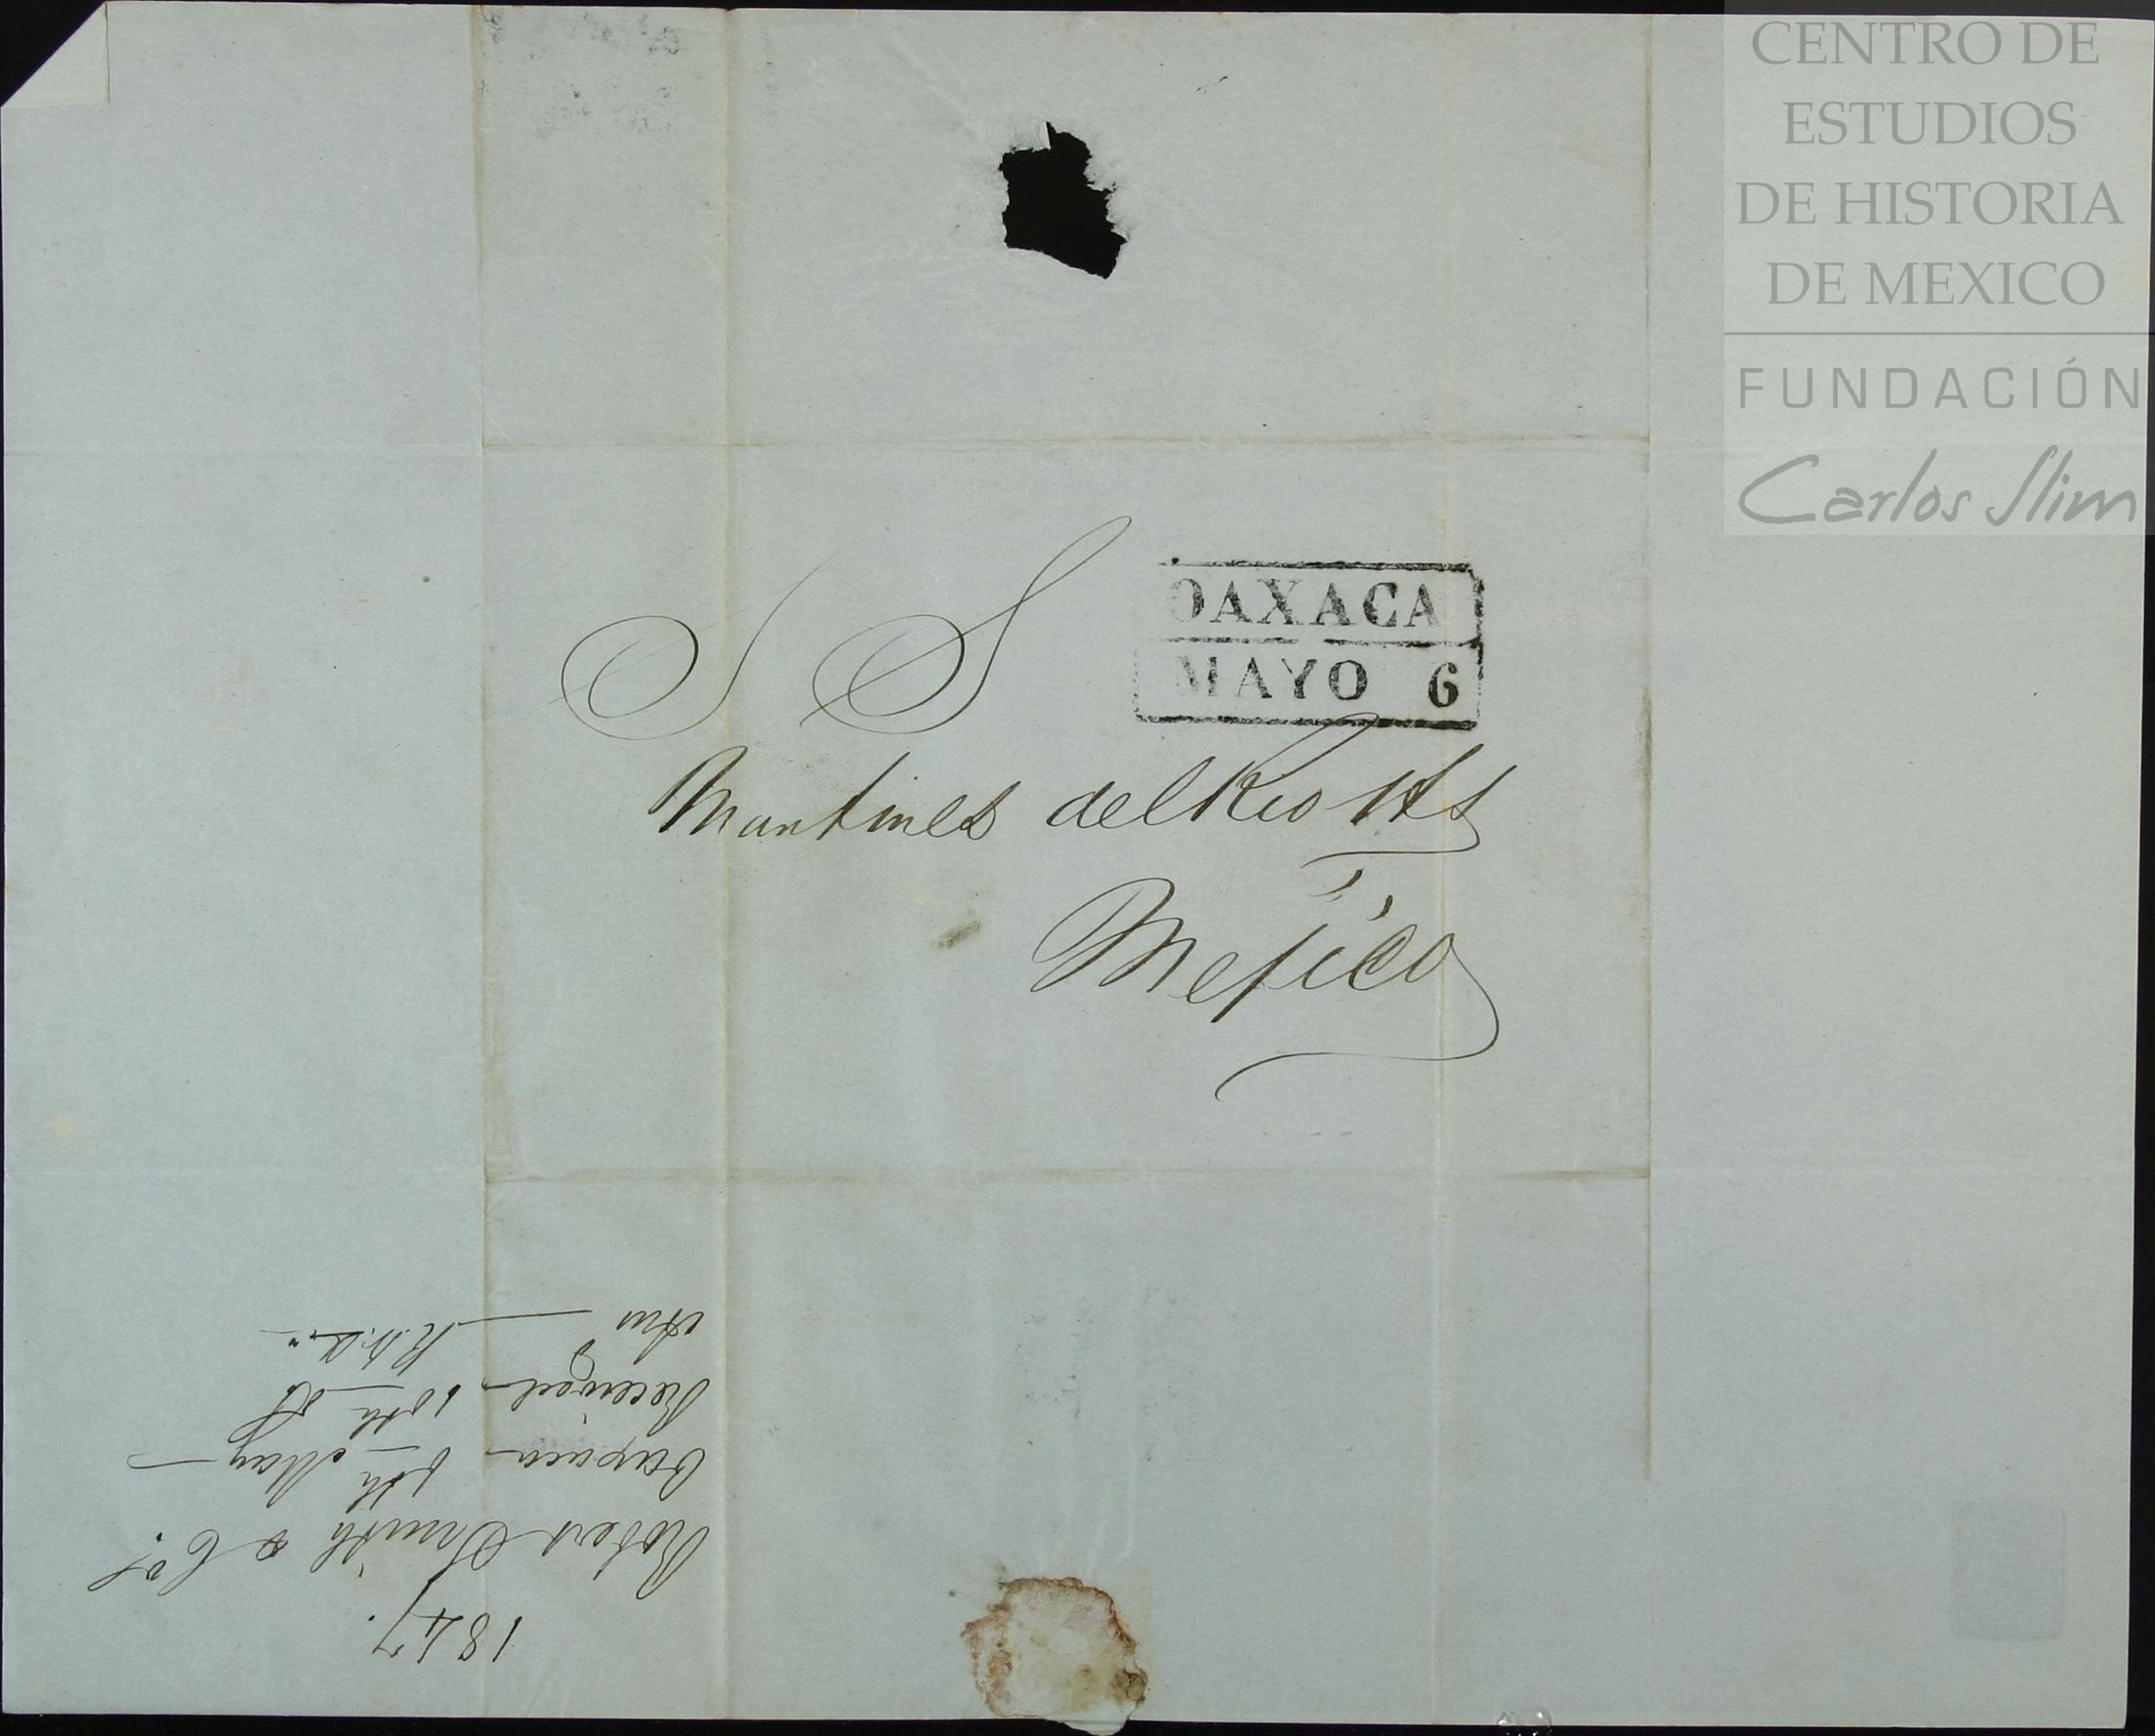 CENTRO DE
ESTUDIOS
DE HISTORIA
DE MEXICO
FUNDACIÓN
Carlos Slim
S S
OAXACA
MAYO 6
Martinez del Rio Hs
Mejico
1847.
Robert Smith & Co.
Oaxaca 6th May
Received 10th
Ans